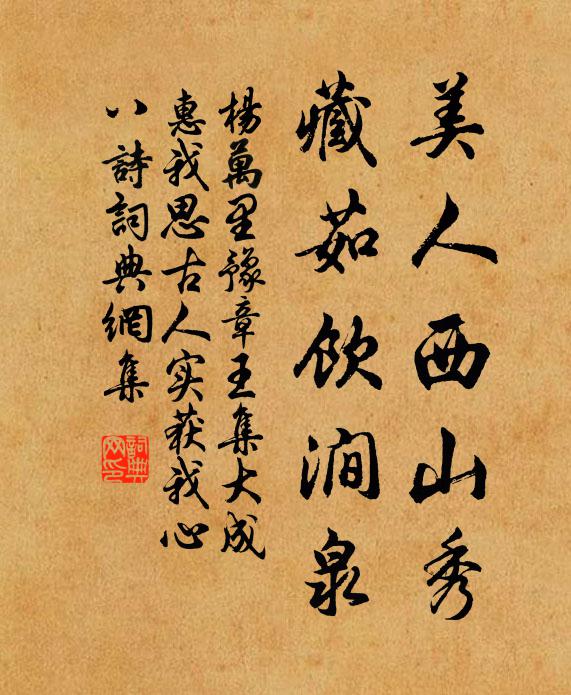 美人西山秀
藏茹飲澗泉
楊萬里豫章王集大成
惠我思古人实获我心
八詩詞典網集
詞典
网印